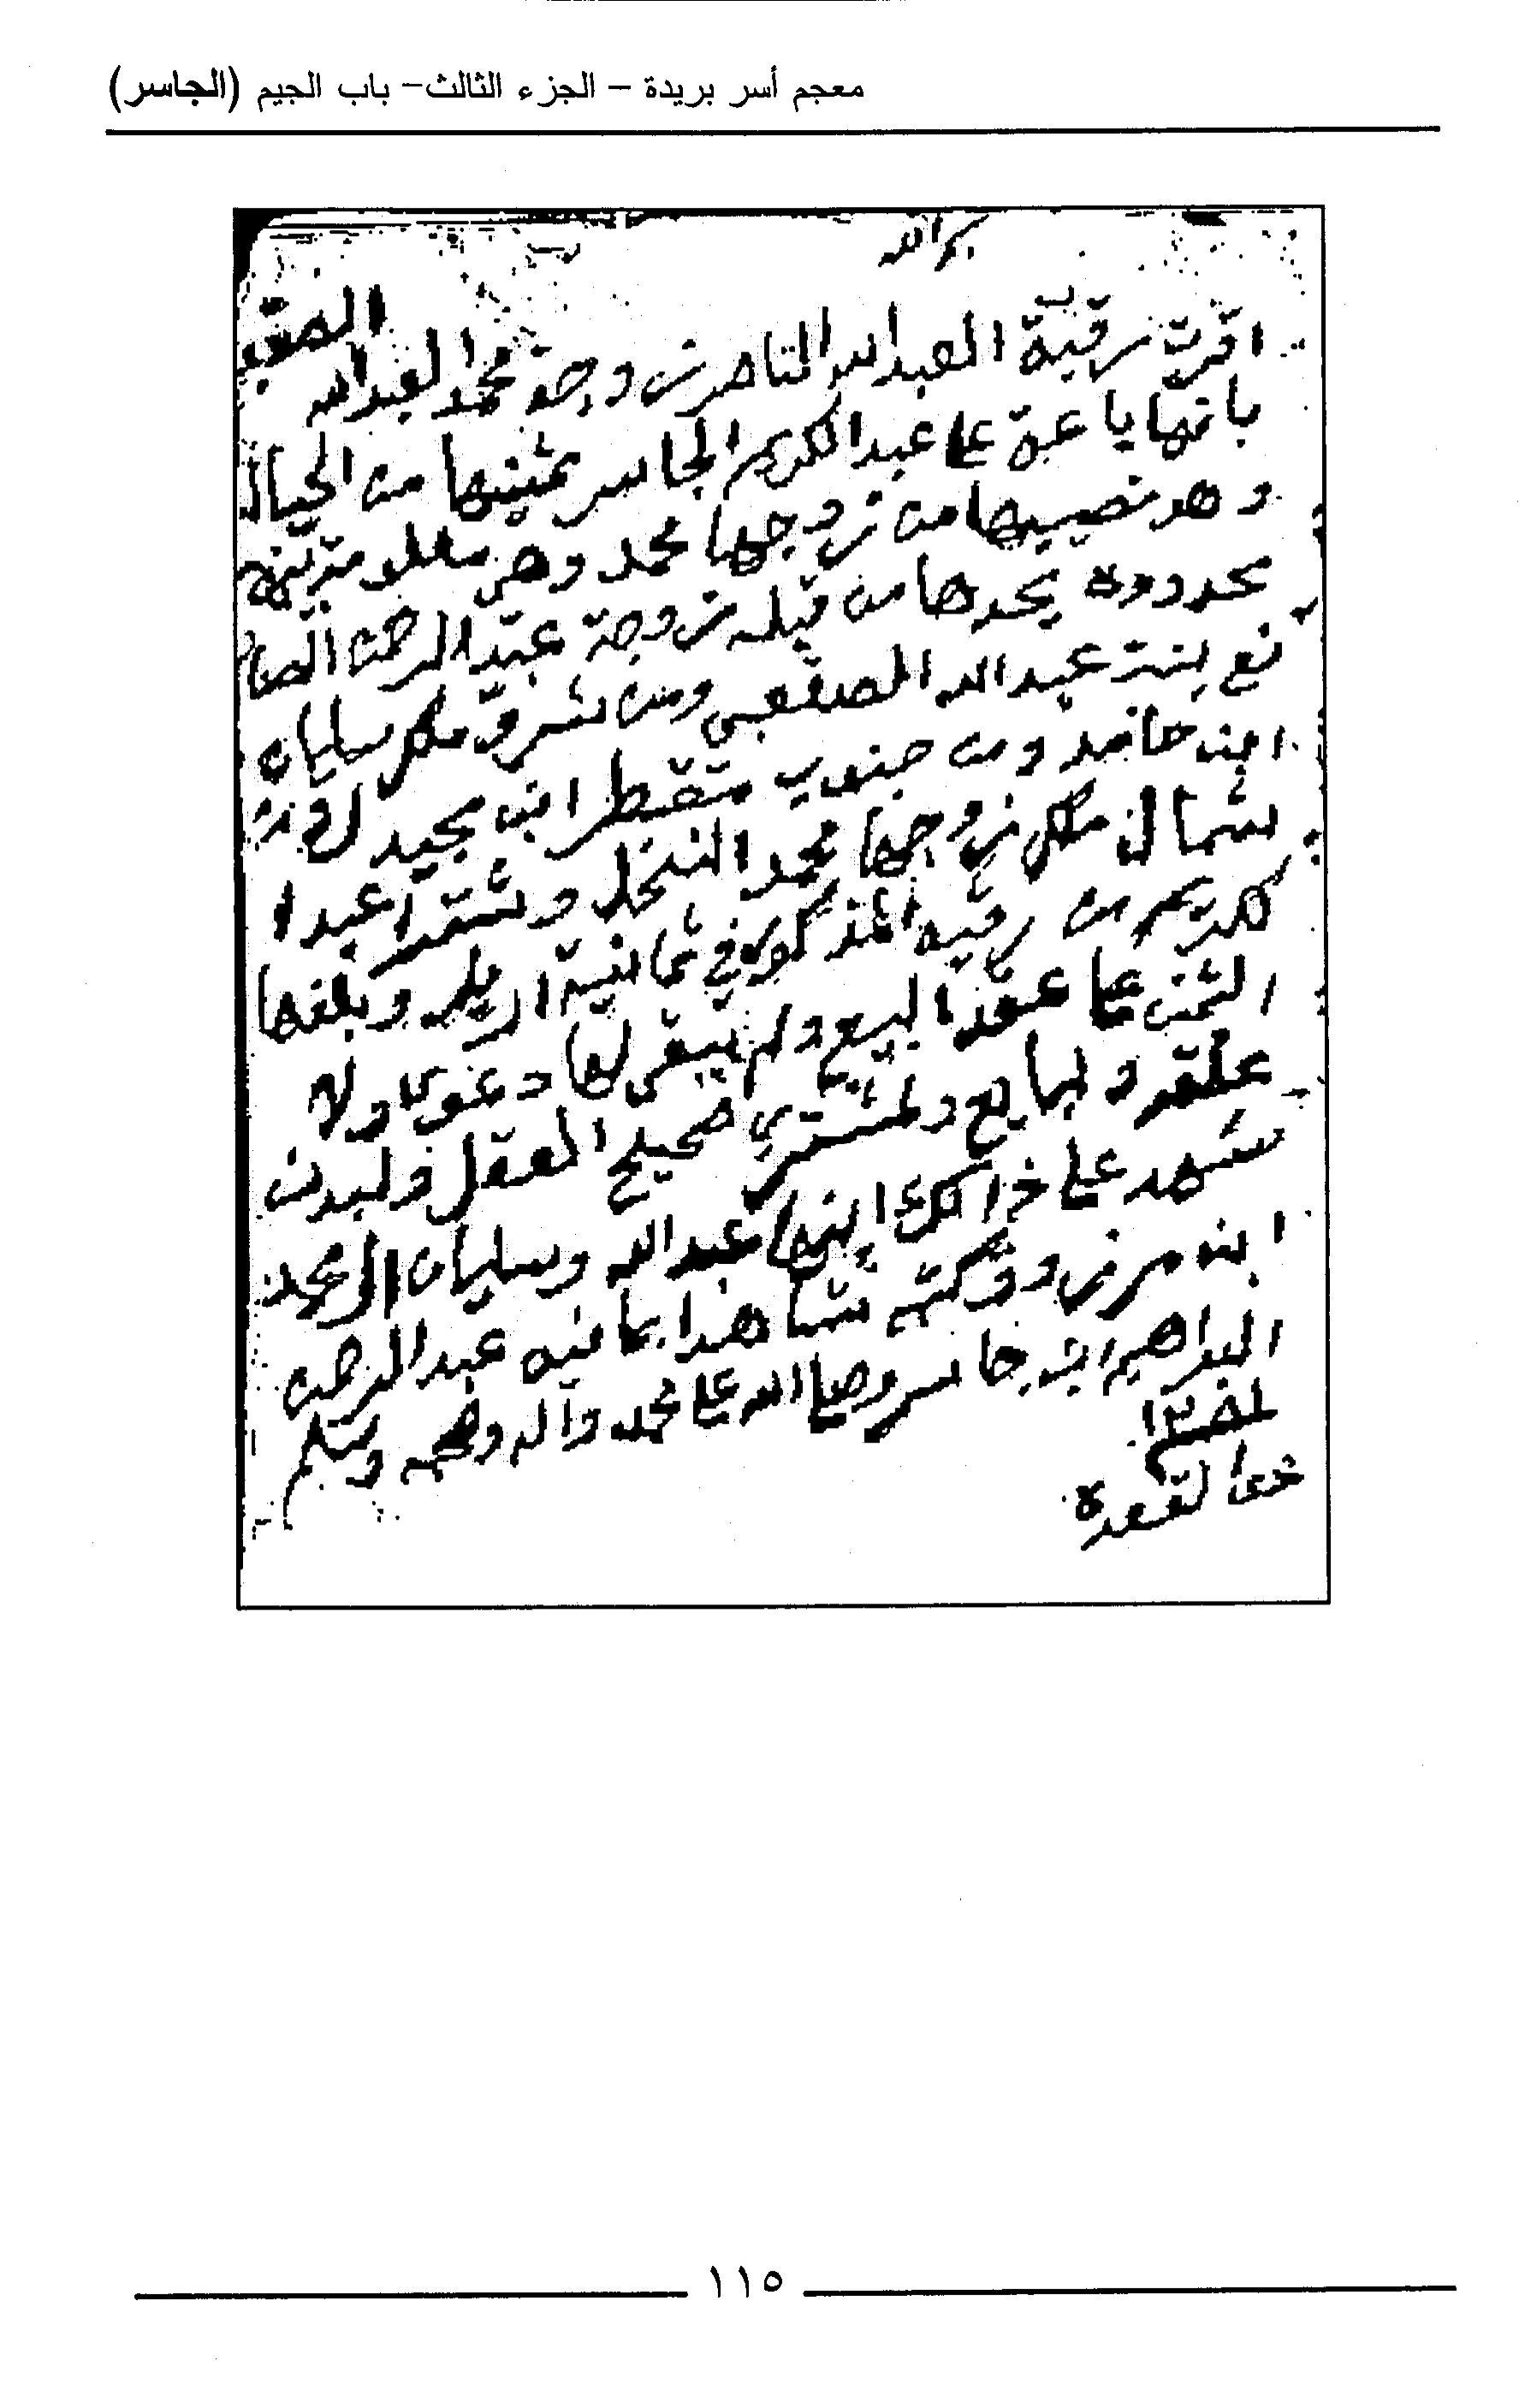 معجم أسر بريدة – الجزء الثالث– باب الجيم (الجاسر)
بسم الله
اقرت رقية العبدالله الناصر زوجة محمد العبدالله
بانها باعة على عبدالكريم الجاسر ثمينها من الحيال
وهو نصيبها من زوجها محمد وهي معلومتن
محدوده يحدها من قبله زوجة عبدالرحمن الصا
نع بنت عبدالله المصقعبي ومن شرق ملك سليمان
ابن حامد ومن جنوب ابن مجيدل ومن
شمال ملك زوجها محمد النخل وشترا عبدا
لكريم من رقيه المذكوره في ثمانية اريل وبلغها
الثمن على عقد البيع ولم يبقى لها دعوى ولا
علقه ولبايع ولمشتري صحيح العقل ولبدن
شهد على ذالك ابنها عبدالله وسليمان المحمد
ابنه وكتبه شاهدا بما فيه عبدالرحمن
البراهيم ابن جاسر وصلى الله على محمد وآله وصحبه وسلم
ذي القعدة
١١٥